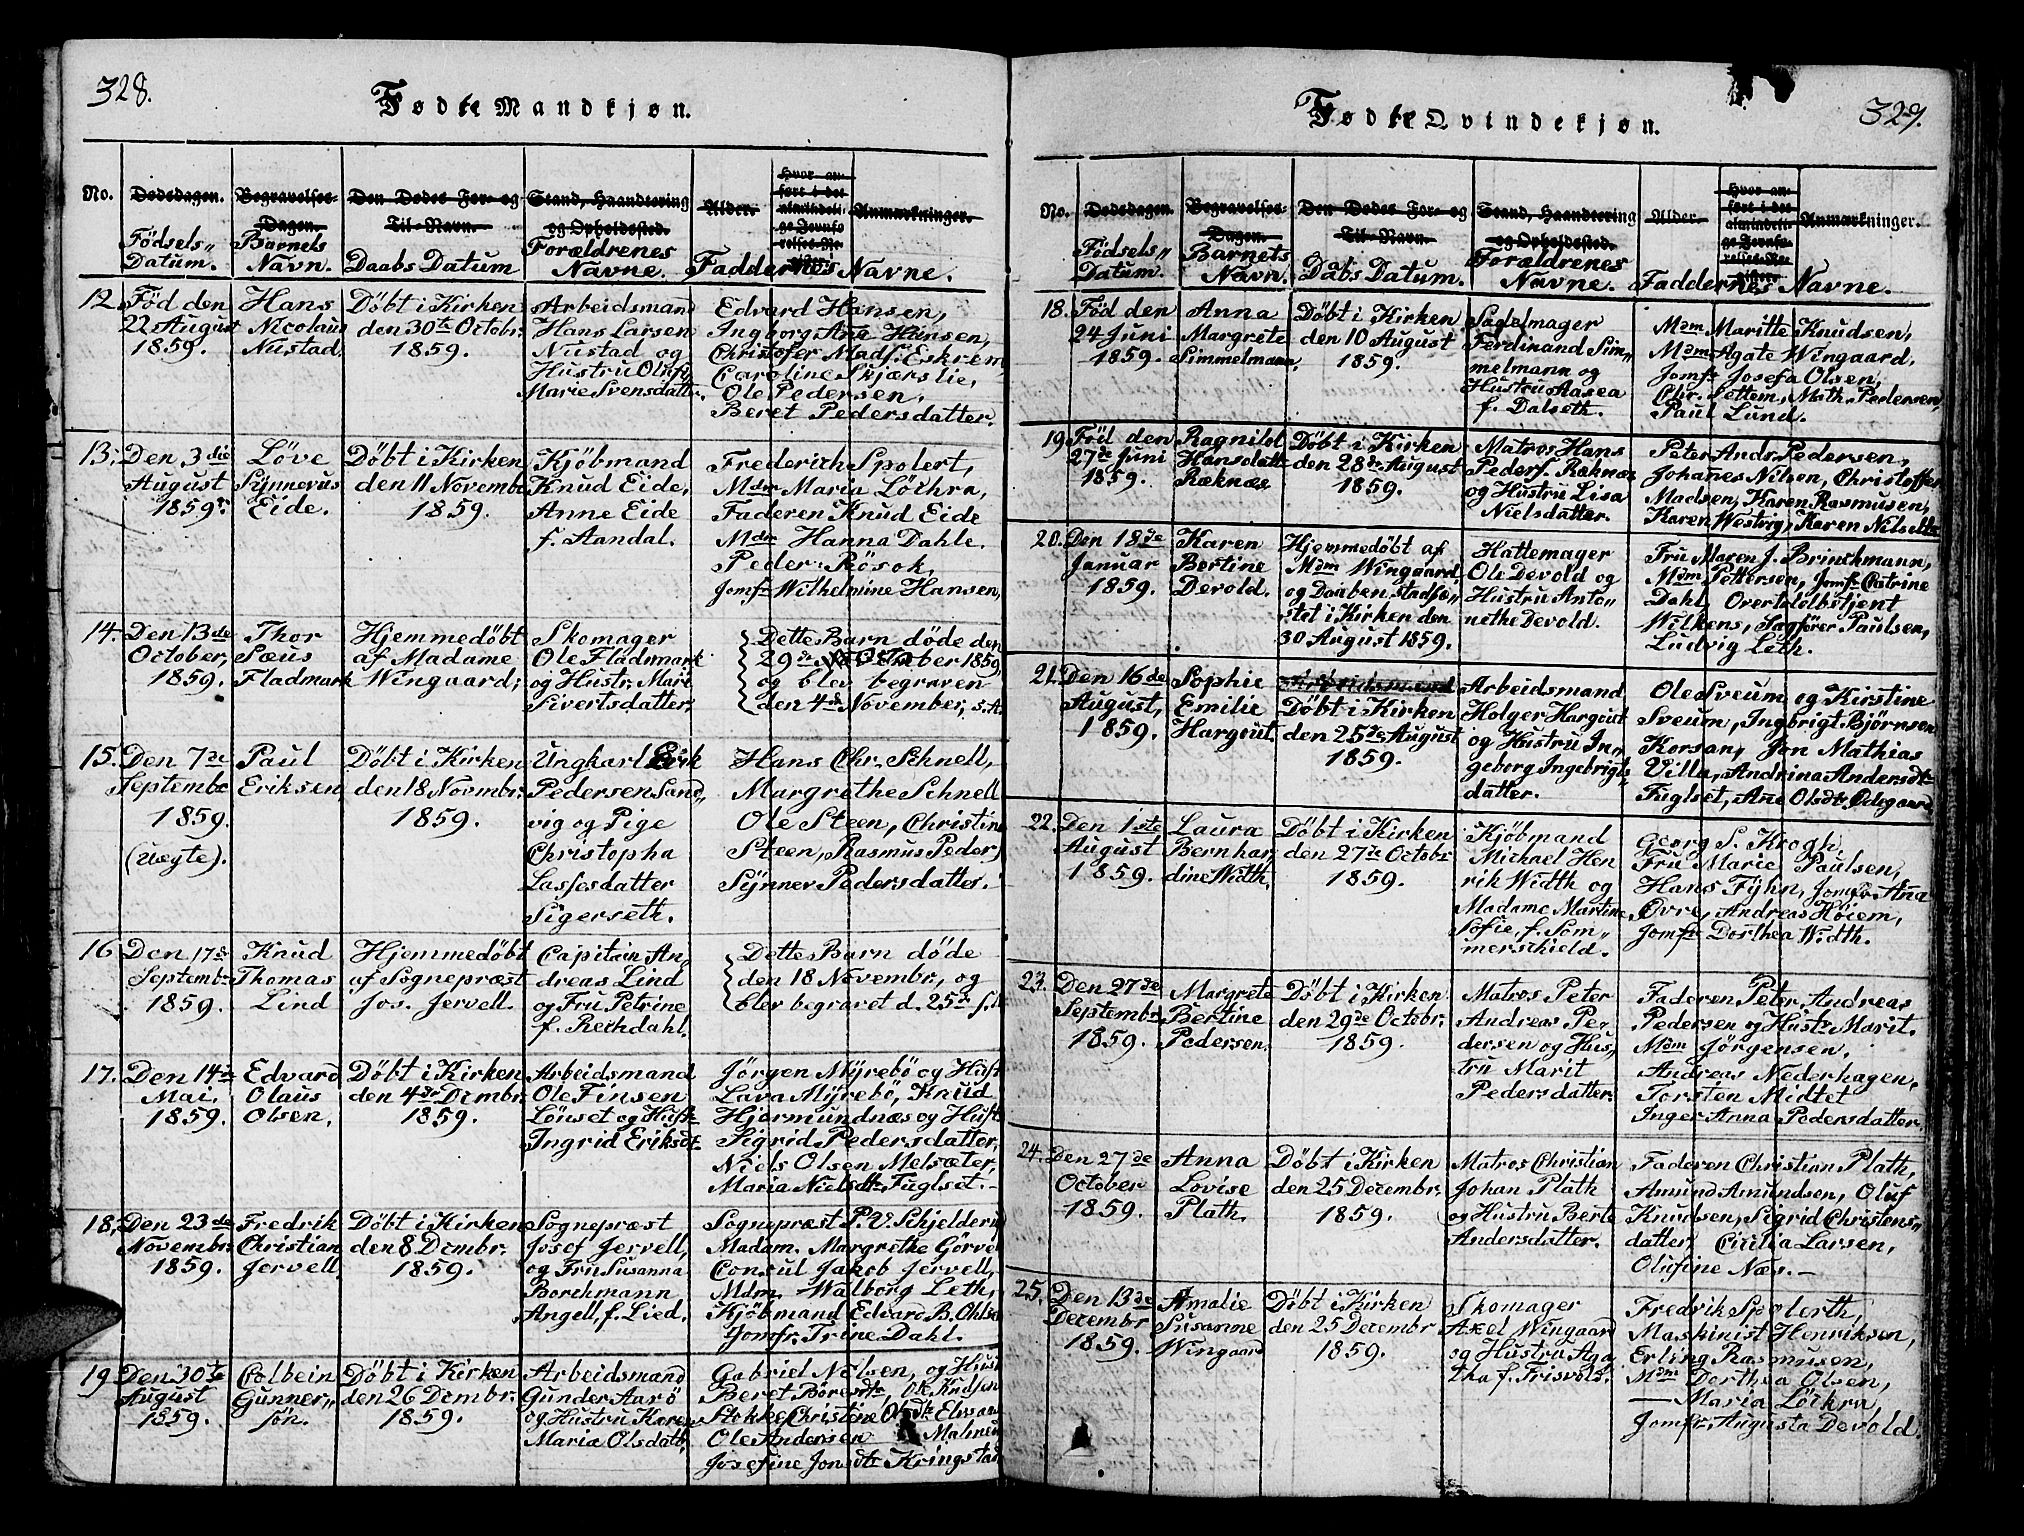 328.
Fødte Mandkjøn.
No.
Dødsdagen.
Begravelses-
Dagen.
Den Dødes For- og
Til-Navn.
Stand, Haandtering
og Opholdssted.
Alder.
Hvor an-
ført i det
almindeli-
ge Jevnfø-
relses-Re-
Anmærkninger.
Födsels„
Datum.
Barnets
Navn.
Daabs Datum
Forældrenes
Navne.
Faddernes Navne.
12
Föd den
22 August
1859.
Hans
Nicolaus
Nustad.
Döbt i Kirken
den 30te Octobr.
1859.
Arbeidsmand
Hans Larsen
Nustad og
Hustru Olufi
Marie Svensdatter.
Edvard Hansen,
Ingborg Ane Hansen,
Christofer Madss. Eskrem
Caroline Skjærslie,
Ole Pedersen,
Beret Pedersdatter.
13,
Den 3die
August
1859.
Löve
Synnevus
Eide.
Döbt i Kirken
den 11 Novembr
1859.
Kjöbmand
Knud Eide,
Anne Eide
f. Aandal.
Frederich Spolert,
Mdm Maria Löchra,
Faderen Knud Eide
Mdm Hanna Dahle.
Peder Rösok,
Jomfr Wilhelmine Hansen,
14.
Den 13de
October,
1859.
Thor
Sæus
Fladmark
Hjemmedöbt
af Madame
Wingaard;
Skomager
Ole Fladmark
og Hustr. Mari
Sivertsdatter,
Dette Barn döde den
29de October 1859,
og blev begraven
den 4de November, s. A.
15.
Den 7de
Septembr
1859.
(Uegte).
Paul
Eriksen,
Döbt i Kirken
den 18 Novmbr.
1859.
Ungkarl Erik
Pedersen Sand„
vig og Pige
Christopha
Lassesdatter
Sigerseth.
Hans Chr. Schnell,
Margrethe Schnell
Ole Steen, Christine
Steen, Rasmus Peder,
Synnev Pedersdatter.
16
Den 17de
Septembr.
1859.
Knud
Thomas
Lind
Hjemmedöbt
af Sognepræst
Jos. Jervell.
Capitain An„
dreas Lind
og Fru Petrine
f. Reichdahl.
Dette Barn döde
den 18 Novembr, og
blev begravet d. 25de
17.
Den 14de
Mai.
1859.
Edvard
Olaus
Olsen,
Döbt i Kirken
den 4de Dcmbr.
1859.
Arbeidsmand
Ole Finsen
Lönset og Hust.
Ingrid Eriksdt
Jörgen Myrebö og Hust
Lava Myrebö, Knud
Hjermundnæs og Hust
Sigrid Pedersdatter,
Niels Olsen Melsæter,
Maria Nielsdtr Fuglset.
18,
Den 23de
Novembr.
1859.
Fredrik
Christian
Jervell.
Döbt i Kirken
den 8 Dcmbr.
1859.
Sognepræst
Josef Jervell,
og Fru Susanna
Borchmann
Angell, f. Lied.
Sognepræst P. V. Schjelderup
Madam. Margrethe Görvel
Consul Jakob Jervell,
Mdm. Walborg Leth,
Kjöbmand Edvard B. Ohlsen
Jomfr. Trine Dahl.
19
Den 30te
August
1859.
Colbein
Gunner„
sön.
Döbt i Kirken
den 26 Dcmbr.
1859.
Arbeidsmand
Gunder Aarö
og Hustru Karen
Maria Olsdatt.
Gabriel Nielsen, og Hust
Beret Börresdtr, Ole Knudsen
Stokke, Christine Olsdtr
Ole Andersen
Josefine Jonsdtr Kringstad
329.
Fødte Qvindekjøn.
No.
Dødsdagen.
Begravelses-
Dagen.
Den Dødes For- og
Til-Navn.
Stand, Haandtering
og Opholdssted.
Alder.
Hvor an-
ført i det
almindeli-
ge Jevnfø-
relses-Re-
gister.
Anmærkninger.
Födsels„
Datum.
Barnets
Navn.
Dabs Datum.
Forældrenes
Navne.
Faddernes Navne.
18.
Föd den
24 Juni
1859.
Anna
Margrete
Simmelmann.
Döbt i Kirken
den 10 August
1859.
Sadelmager
Ferdinand Sim„
melmann og
Hustru Aasea
f. Dalseth.
Mdm Maritte Knudsen,
Mdm Agate Wingaard,
Jomfr Josefa Olsen,
Chr. Settem, Math. Pedersen,
Paul Lund.
19
Föd den
27de Juni
1859.
Ragnild
Hansdatt.
Ræknæs
Döbt i Kirken
den 28de August
1859.
Matros Hans
Peders. Ræknæs
og Hustru Lisa
Nielsdatter.
Peter Ands Pedersen,
Johanes Nilsen, Christoffer
Madsen, Karen Rasmusen,
Karen Westvig, Karen Nilsdtr
20.
Den 18de
Januar
1859.
Karen
Bertine
Devold.
Hjemmedöbt af
Mdm Wingaard
og Daaben stadfæ„
stet i Kirken den
30 August 1859.
Hattemager
Ole Devold og
Hustru Anto„
nethe Devold.
Fru Maren J. Brinchmann,
Mdm Pettersen, Jomfr Catrine
Dahl, Overtoldbetjent
Wilkens, Sagförer Paulsen,
Ludvig Leth.
21.
Den 16de
August,
1859.
Sophie
Emilie
Hargout.
Arbeidsmand
Döbt i Kirken
den 25de August
1859.
Arbeidsmand
Holger Hargout
og Hustru In„
geborg Ingebrigts„
datter.
Ole Sveum og Kirstine
Sveum, Ingbrigt Björnsen
Korsan, Jon Mathias
Villa, Andrina Andersdtr
Fuglset, Ane Olsdtr Ödegaard
22.
Den 1ste
August
1859.
Laura
Bernhar„
dine Width.
Döbt i Kirken
den 27de Octobr
1859.
Kjöbmand
Michael Hen
rik Width og
Madame Martine
Sofie, f. Som„
merschield.
Georg S. Krogh,
Fru Marie Paulsen,
Hans Fyhn, Jomfr Ana
Övre, Andreas Höiem,
Jomfr Dorthea Width.
23.
Den 27de
Septembr,
1859.
Margrete
Bertine
Pedersen.
Döbt i Kirken
den 29de Octobr.
1859.
Matros Peter
Andreas Pe„
dersen og Hus„
tru Marit
Pedersdatter.
Faderen Peter Andreas
Pedersen og Hustr Marit.
Mdm Jörgensen,
Andreas Nederhagen,
Torsten Midtet
Inger Anna Pedersdatter.
24.
Den 27de
October
1859.
Anna
Lovise
Plath.
Döbt i Kirken
den 25 Decembr.
1859.
Matros Christian
Johan Plath
og Hustru Berte
Andersdatter.
Faderen Christian Plath,
Amund Amundsen, Oluf
Knudsen, Sigrid Christens„
datter, Cicilia Larsen,
Olufine Næs.
25.
Den 13de
Decembr
1859.
Amalie
Susanne
Wingaard
Döbt i Kirken
den 25 Decembr
1859.
Skomager
Axel Wingaard
og Hustru Aga
tha f. Frisvold.
Fredrik Spolerth,
Maskinist Henriksen,
Erling Rasmusen,
Mdm Dorthea Olsen,
— Maria Löchra,
Jomfr. Augusta Devold.